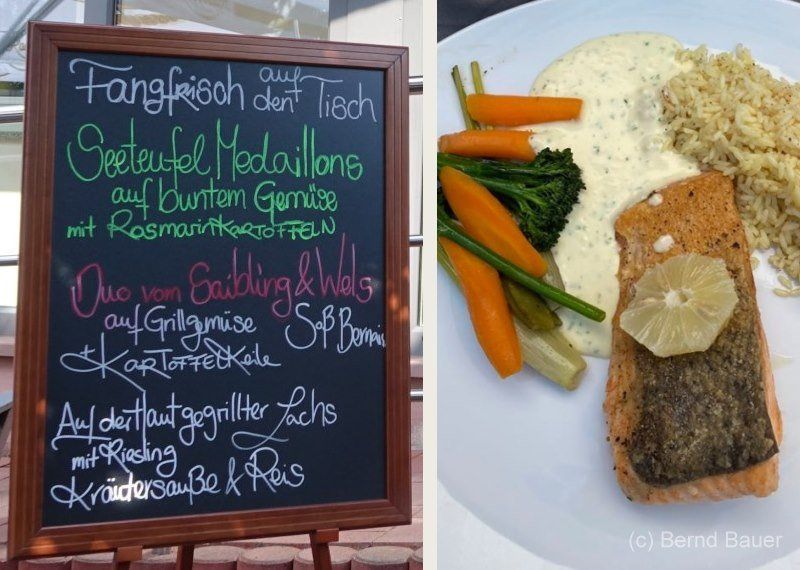 Fangfrisch auf den Tisch
Seeteufel Medaillons
auf buntem Gemüse
mit Rosmarinkartoffeln
Duo vom Saibling & Wels
auf Grillgemüse Soß Bernais
+ Kartoffelkeile
Auf der Haut gegrillter Lachs
mit Riesling
Kräutersauße & Reis
(c) Bernd Bauer